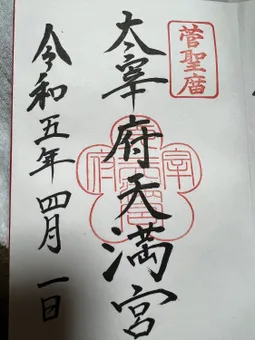 菅聖庿
太宰府天満宮
令和五年四月一日